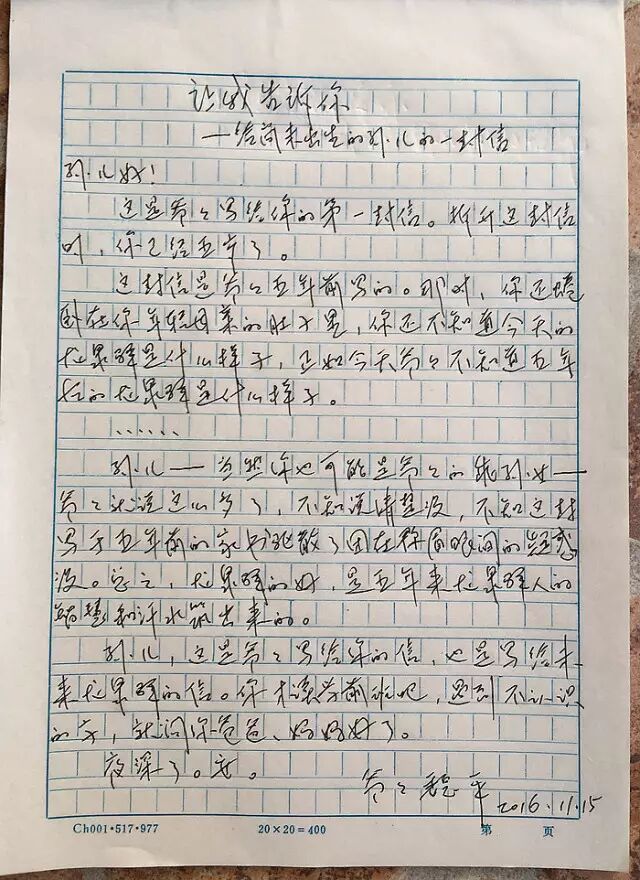 让我告诉你
——给尚未出生的孙儿的一封信
孙儿好！
这是爷々写给你的第一封信。拆开这封信
时，你已经五岁了。
这封信是爷々五年前写的。那时，你还蜷
卧在你年轻母亲的肚子里，你还不知道今天的
龙泉驿是什么样子，正如今天爷々不知道五年
后的龙泉驿是什么样子。
……
孙儿——当然你也可能是爷々的孙女——
爷々就说这么多了，不知说清楚没，不知这封
写于五年前的家书驱散了团在你眉眼间的疑惑
没。总之，龙泉驿的好，是五年来龙泉驿人的
智慧和汗水筑出来的。
孙儿，这是爷々写给你的信，也是写给未
来龙泉驿的信。你才读学前班吧，遇到不认识
的字，就问你爸爸、妈妈好了。
夜深了。安。
爷々 平 2016.11.15
Ch001·517·977 20×20=400 第 页